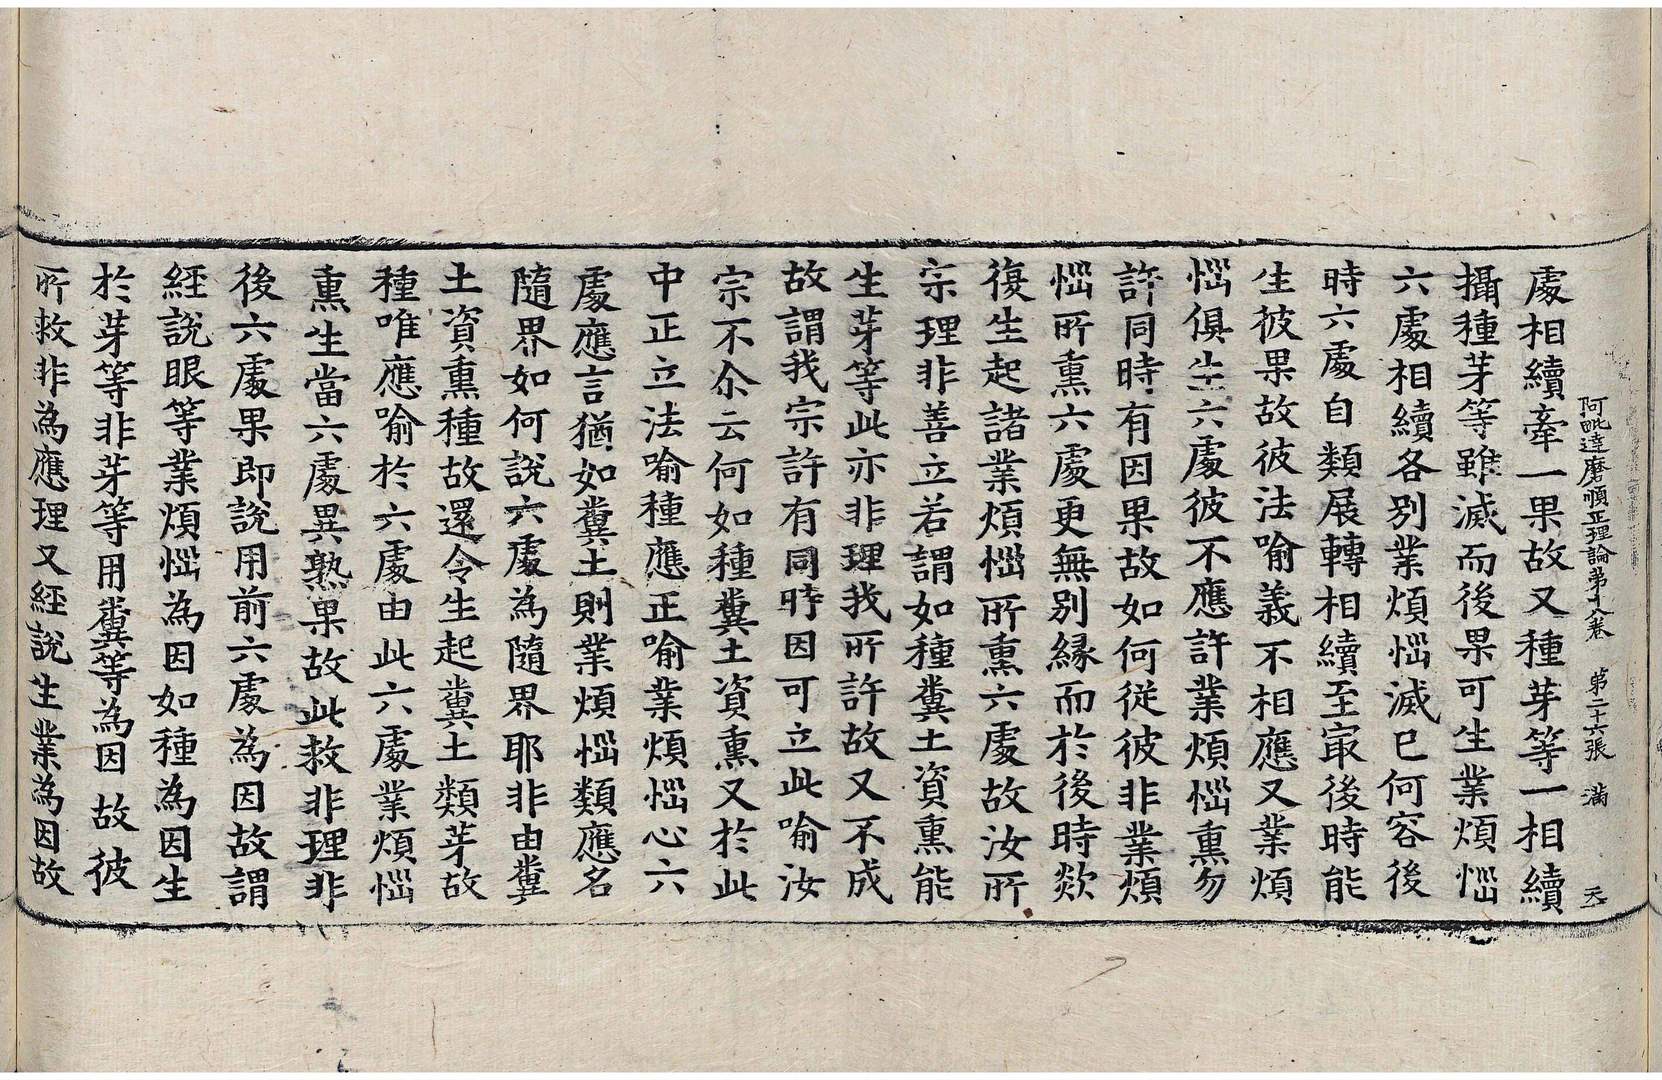 阿毗達磨順正理論第十八卷　第二十六張　滿
處相續牽一果故又種芽等一相續
攝種芽等雖滅而後果可生業煩惱
六處相續各別業煩惱滅已何容後
時六處自類展轉相續至寂後時能
生彼果故彼法喻義不相應又業煩
惱俱生六處彼不應許業煩惱熏勿
許同時有因果故如何從彼非業煩
惱所熏六處更無別緣而於後時欻
復生起諸業煩惱所熏六處故汝所
宗理非善立若謂如種糞土資熏能
生芽等此亦非理我所許故又不成
故謂我宗許有同時因可立此喻汝
宗不尒云何如種糞土資熏又於此
中正立法喻種應正喻業煩惱心六
處應言猶如糞土則業煩惱類應名
隨界如何說六處為隨界耶非由糞
土資熏種故還令生起糞土類芽故
種唯應喻於六處由此六處業煩惱
熏生當六處異熟果故此救非理非
後六處果即說用前六處為因故謂
經說眼等業煩惱為因如種為因生
於芽等非芽等用糞等為因故彼
所救非為應理又經說生業為因故